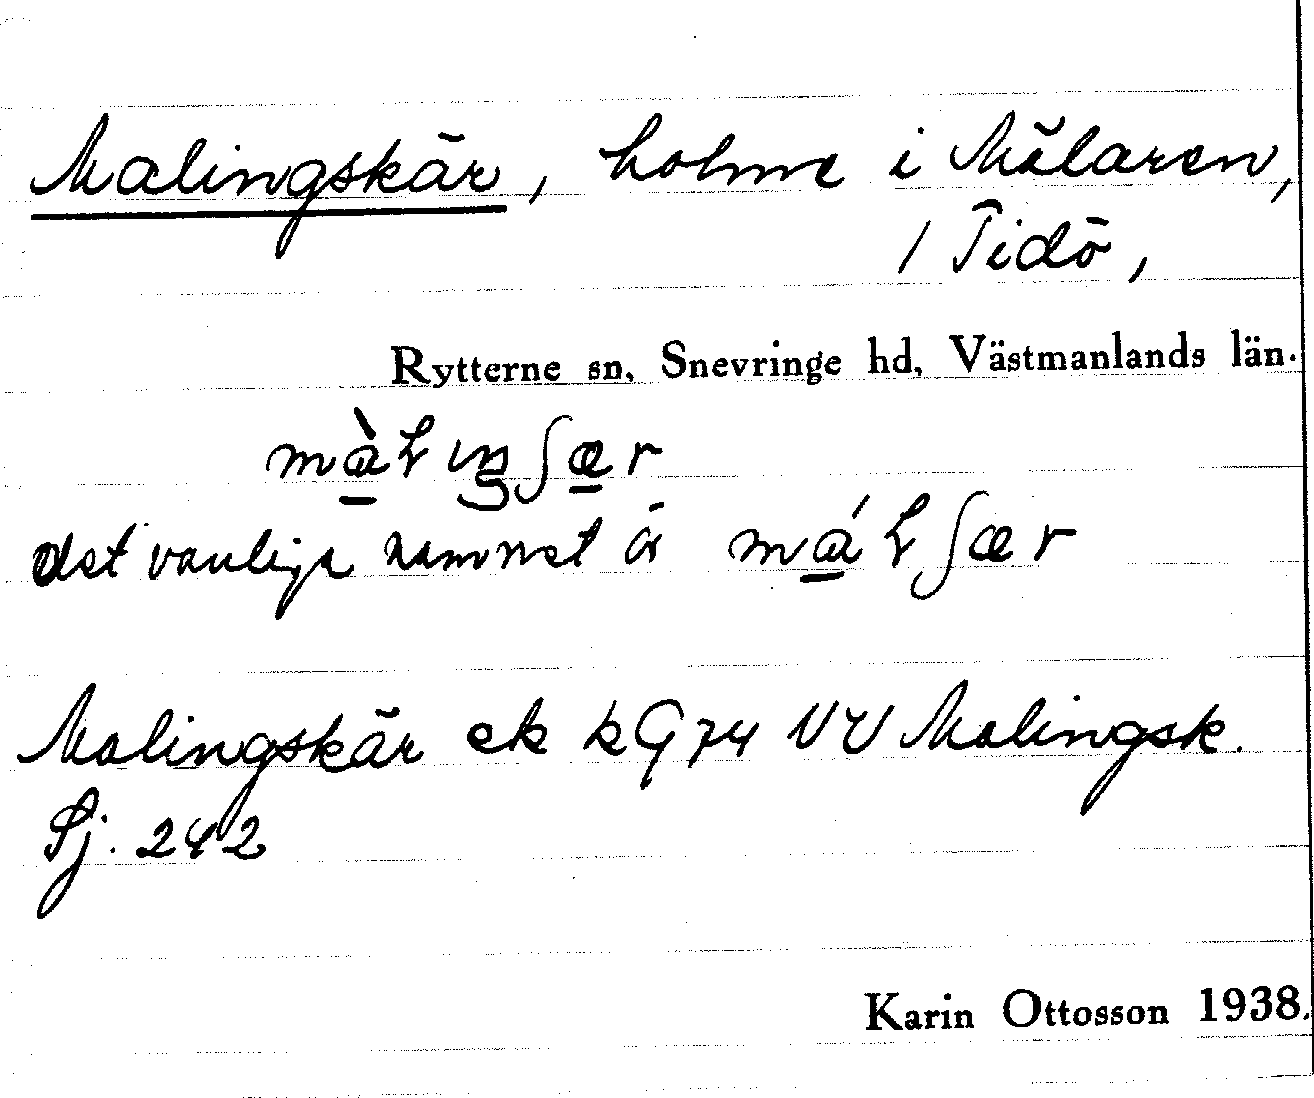 Malingskär, holme i Mälaren,
/ Tidö,
Rytterne sn, Snevringe hd, Västmanlands län.
màlıŋʃær
det vanliga namnet är málʃær
Malingskär ek kG 74 NV Malingsk.
Sj. 242
Karin Ottosson 1938.